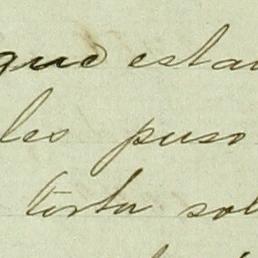 que estau
les puso
torta sol